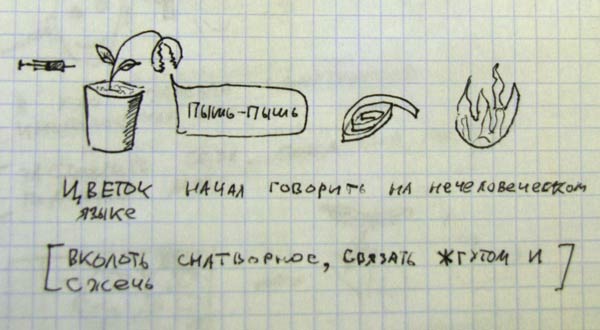 пышь-пышь
цветок начал говорить на нечеловеческом
языке
[вколоть снатворное, связать жгутом и
сжечь]